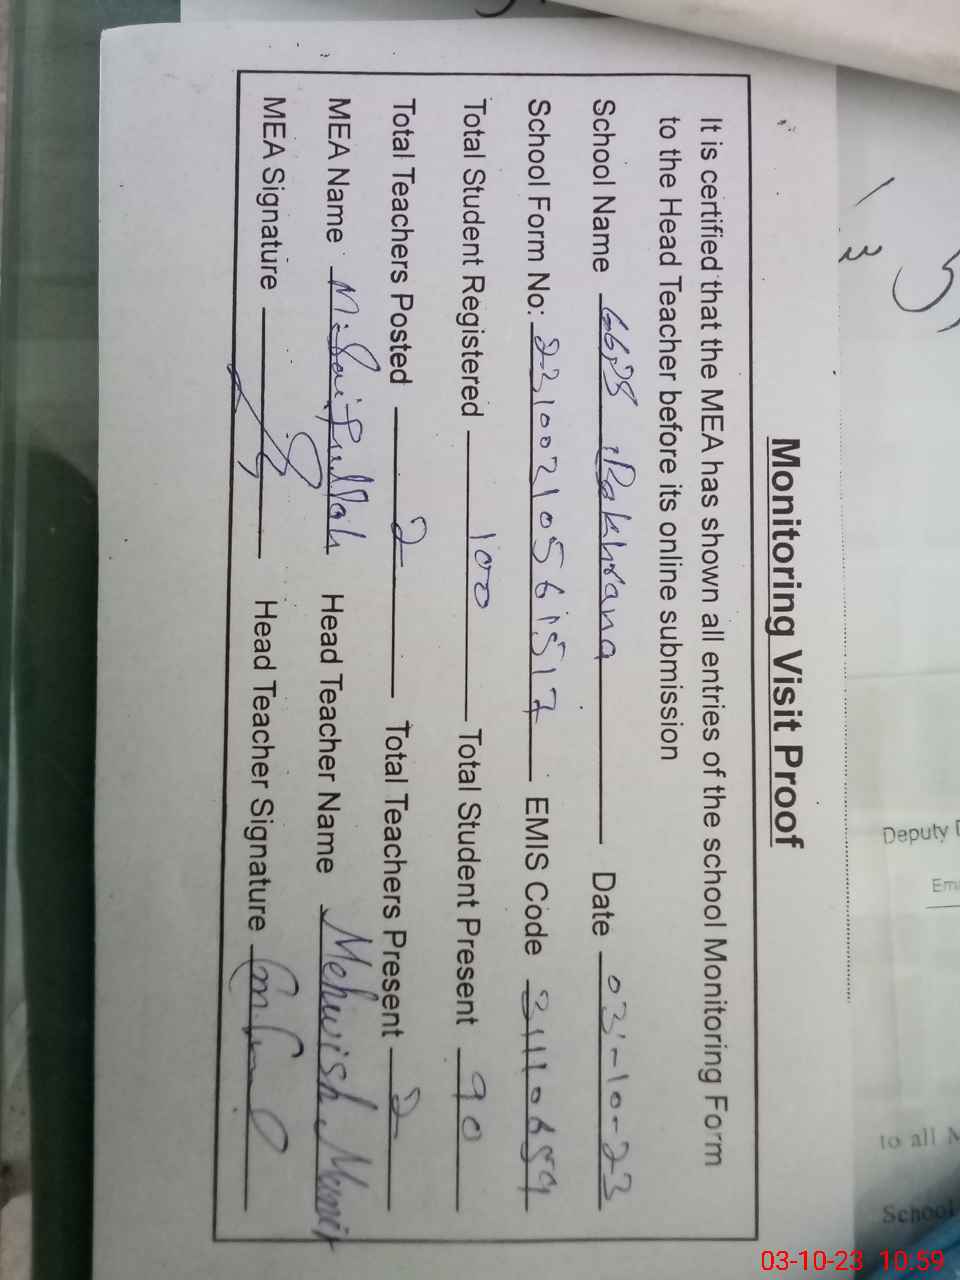 Monitoring Visit Proof
It is certified that the MEA has shown all entries of the school Monitoring Form
to the Head Teacher before its online submission
School Name Rakhrana Date 03-10-23
School Form No: EMIS Code 31110659
Total Student Registered 100 Total Student Present 90
Total Teachers Posted 2 Total Teachers Present 2
MEA Name M. Saifullah Head Teacher Name Mehwish Munir
MEA Signature Head Teacher Signature
Deputy
to all
School
03-10-23 10:59